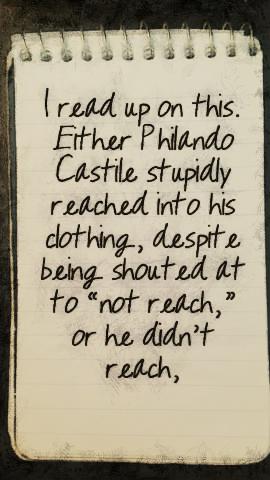 I read up on this.
Either Philando
Castile stupidly
reached into his
clothing, despite
being shouted at
to “not reach,”
or he didn't
reach,